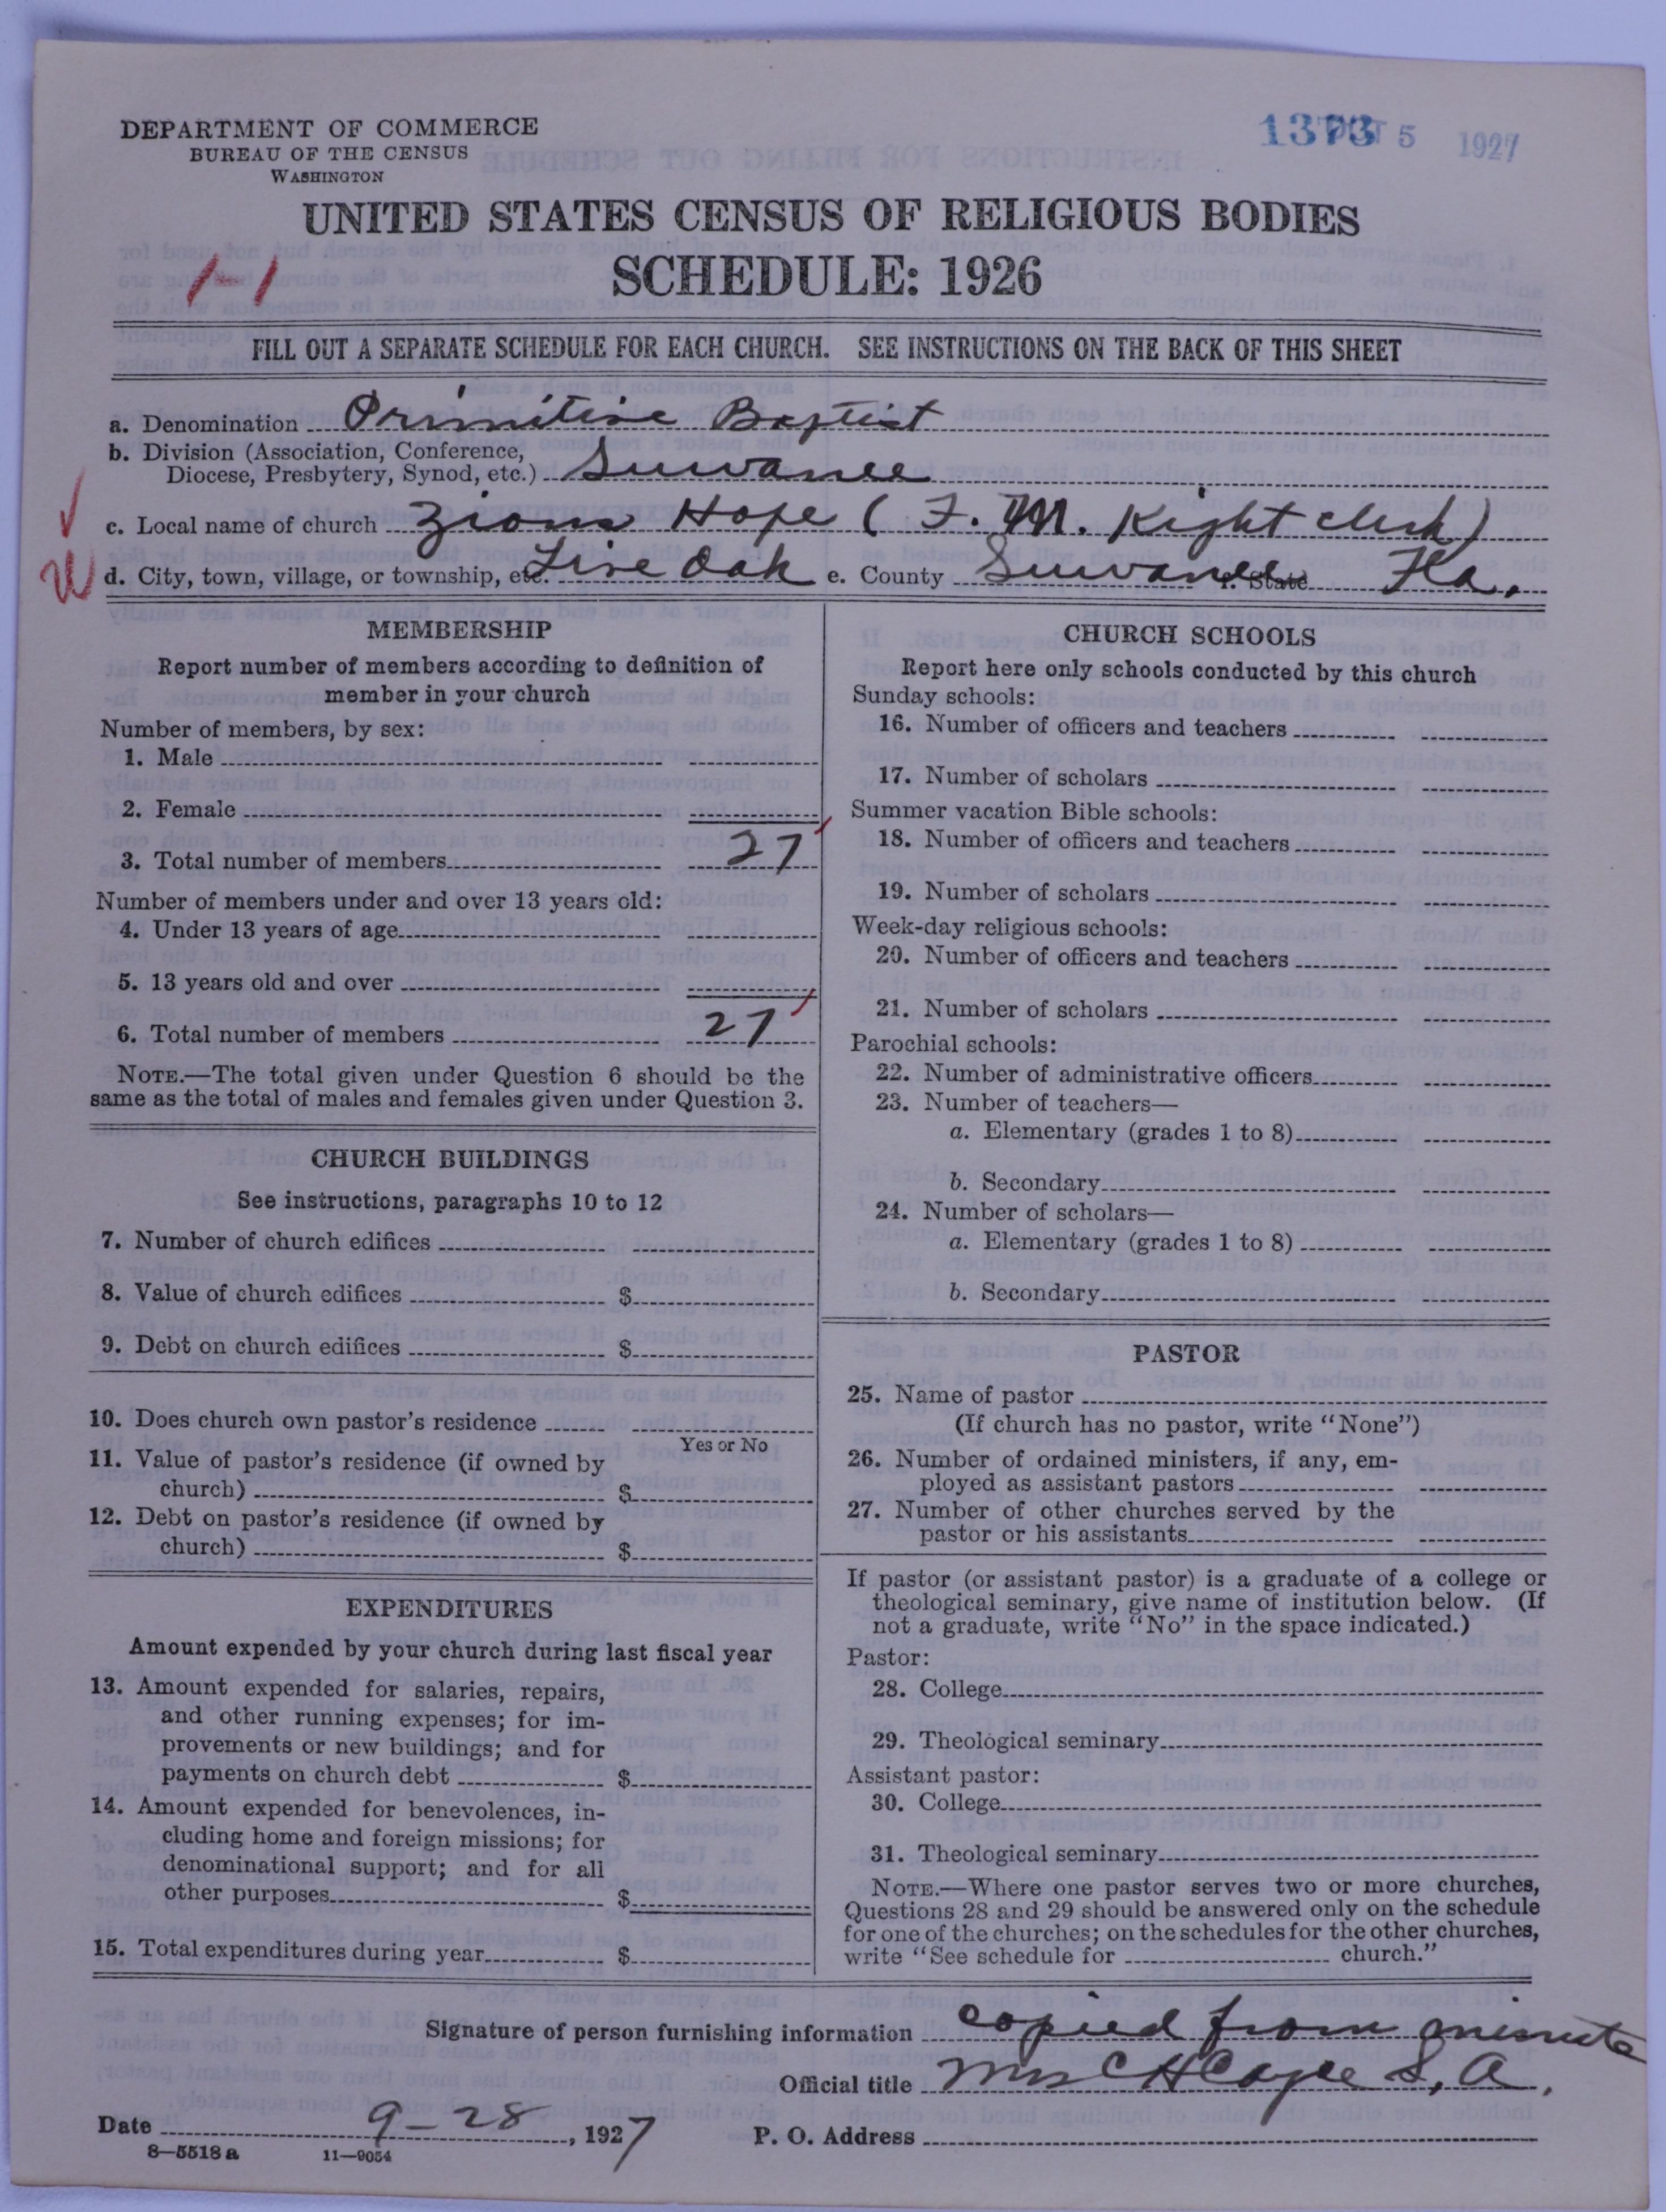 DEPARTMENT OF COMMERCE
BUREAU OF THE CENSUS
WASHINGTON
1373 OCT 5 1927
UNITED STATES CENSUS OF RELIGIOUS BODIES
SCHEDULE: 1926
1-1
FILL OUT A SEPARATE SCHEDULE FOR EACH CHURCH. SEE INSTRUCTIONS ON THE BACK OF THIS SHEET
a. Denomination Primitive Baptist
b. Division (Association, Conference,
Diocese, Presbytery, Synod, etc.) Suwanee
c. Local name of church Zions Hope (F. M. Kight clerk)
d. City, town, village, or township, etc. Live Oak e. County Suwanee f. State Fla.
MEMBERSHIP
Report number of members according to definition of
member in your church
Number of members, by sex:
1. Male
2. Female
3. Total number of members 27
Number of members under and over 13 years old:
4. Under 13 years of age
5. 13 years old and over
6. Total number of members 27
NOTE.—The total given under Question 6 should be the
same as the total of males and females given under Question 3.
CHURCH BUILDINGS
See instructions, paragraphs 10 to 12
7. Number of church edifices
8. Value of church edifices $
9. Debt on church edifices $
10. Does church own pastor's residence
Yes or No
11. Value of pastor's residence (if owned by
church) $
12. Debt on pastor's residence (if owned by
church) $
EXPENDITURES
Amount expended by your church during last fiscal year
13. Amount expended for salaries, repairs,
and other running expenses; for im-
provements or new buildings; and for
payments on church debt $
14. Amount expended for benevolences, in-
cluding home and foreign missions; for
denominational support; and for all
other purposes $
15. Total expenditures during year $
CHURCH SCHOOLS
Report here only schools conducted by this church
Sunday schools:
16. Number of officers and teachers
17. Number of scholars
Summer vacation Bible schools:
18. Number of officers and teachers
19. Number of scholars
Week-day religious schools:
20. Number of officers and teachers
21. Number of scholars
Parochial schools:
22. Number of administrative officers
23. Number of teachers—
a. Elementary (grades 1 to 8)
b. Secondary
24. Number of scholars—
a. Elementary (grades 1 to 8)
b. Secondary
PASTOR
25. Name of pastor
(If church has no pastor, write "None")
26. Number of ordained ministers, if any, em-
ployed as assistant pastors
27. Number of other churches served by the
pastor or his assistants
If pastor (or assistant pastor) is a graduate of a college or
theological seminary, give name of institution below. (If
not a graduate, write "No" in the space indicated.)
Pastor:
28. College
29. Theological seminary
Assistant pastor:
30. College
31. Theological seminary
NOTE.—Where one pastor serves two or more churches,
Questions 28 and 29 should be answered only on the schedule
for one of the churches; on the schedules for the other churches,
write "See schedule for church."
Signature of person furnishing information copied from minute
Official title Mrs C H Cape S. A.
Date 9-28, 1927 P. O. Address
8—5518 a 11—9054